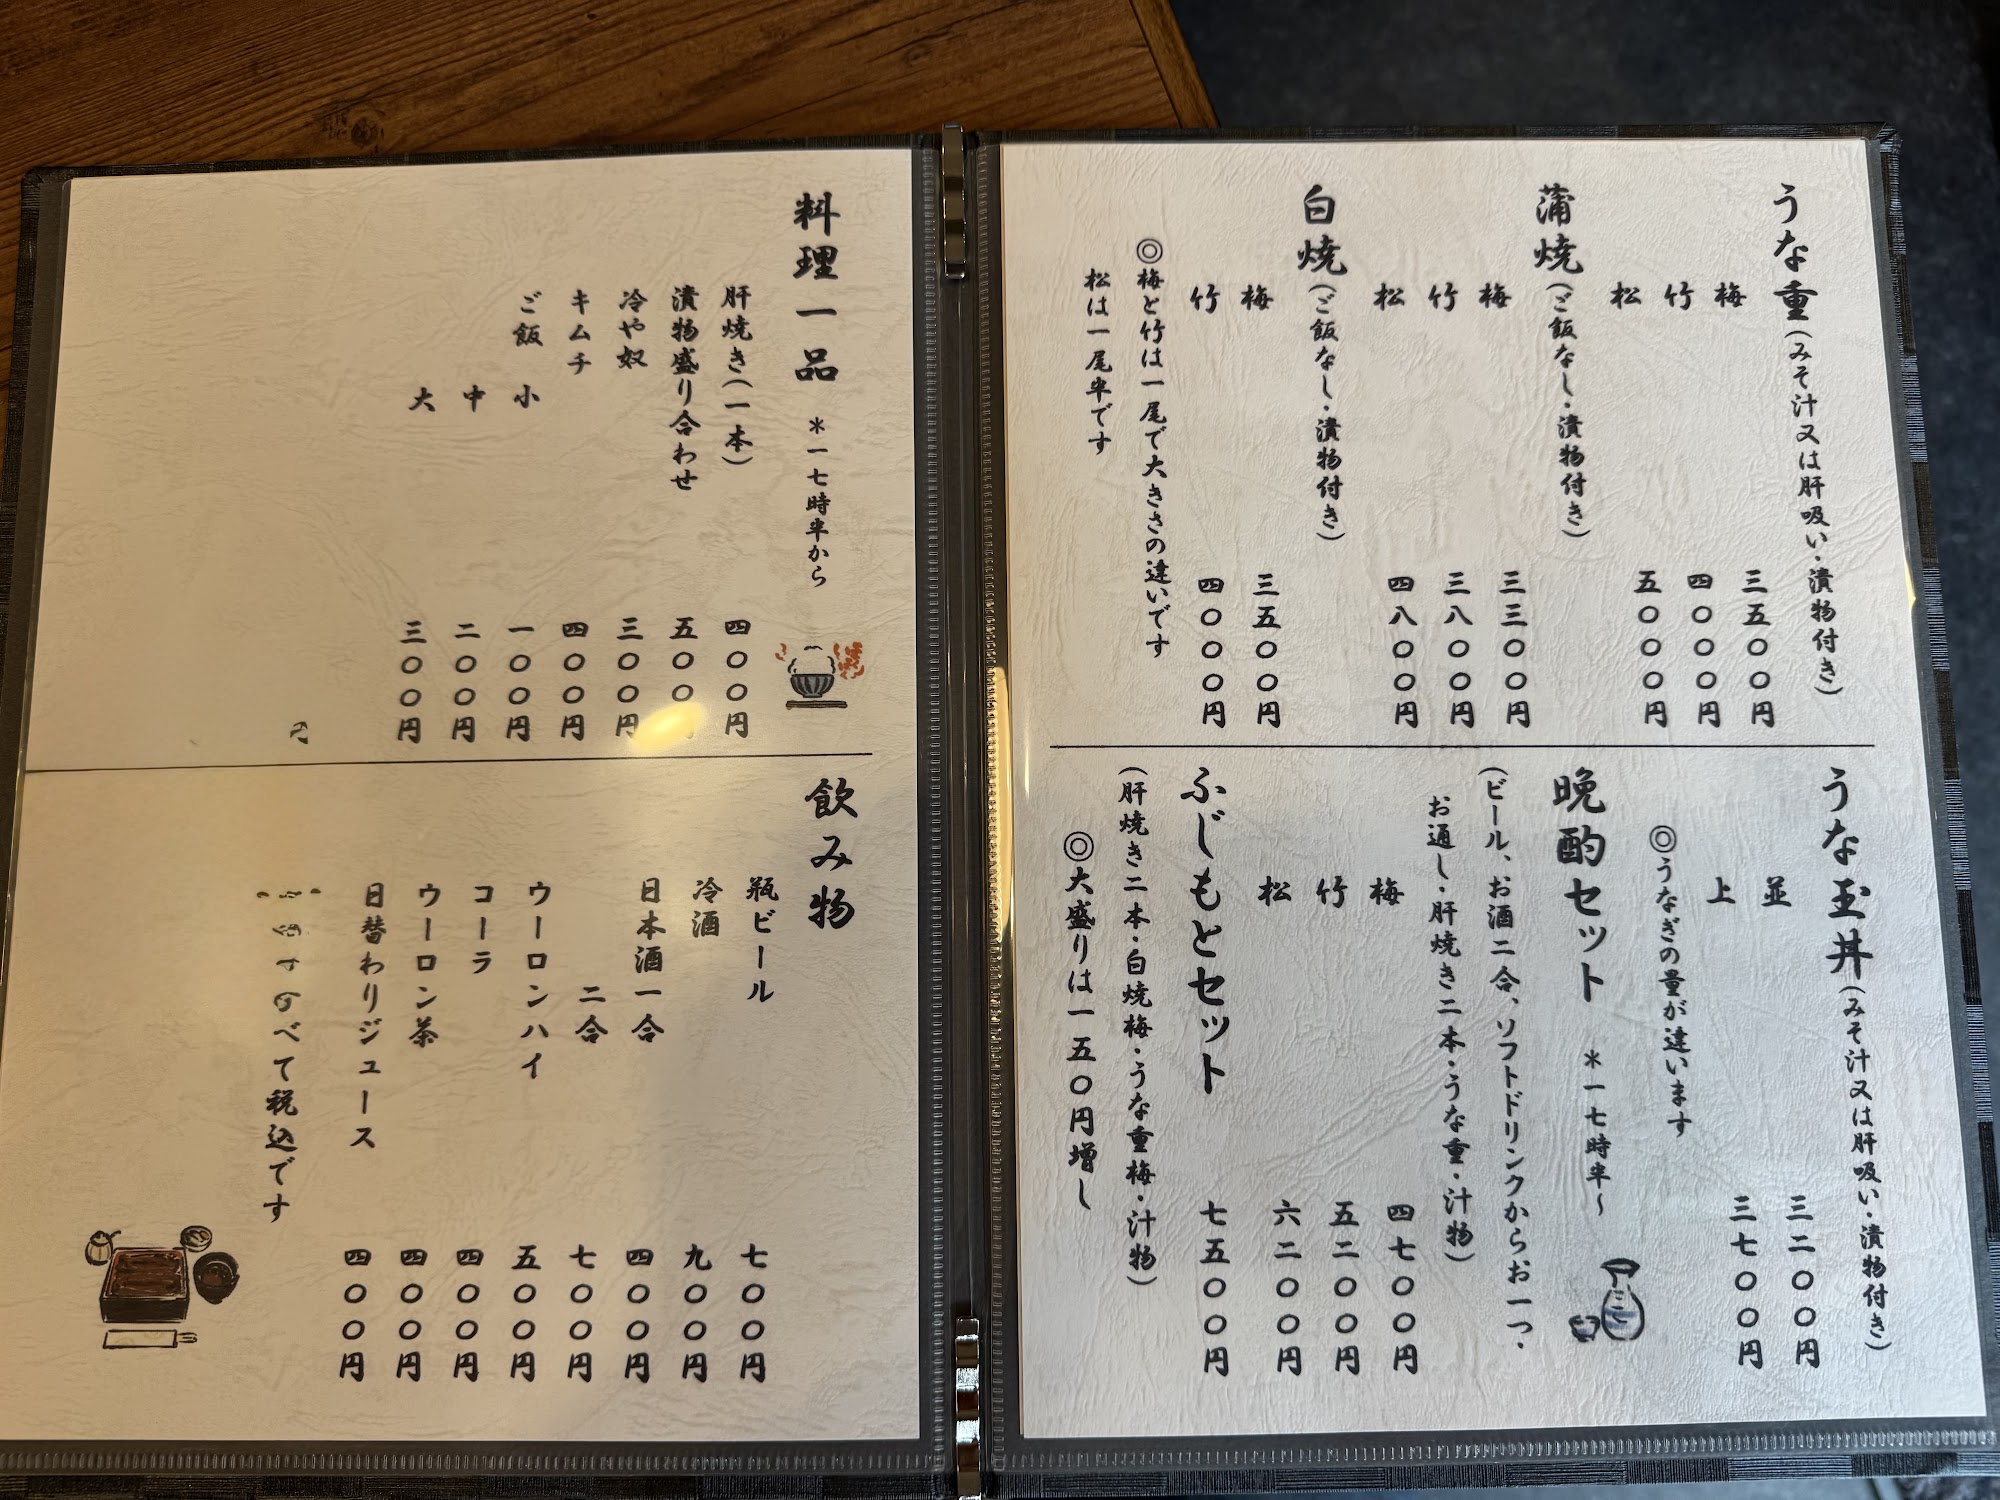 うな重(みそ汁又は肝吸い・漬物付き)
梅 三五〇〇円
竹 四〇〇〇円
松 五〇〇〇円
蒲焼(ご飯なし・漬物付き)
梅 三三〇〇円
竹 三八〇〇円
松 四八〇〇円
白焼(ご飯なし・漬物付き)
梅 三五〇〇円
竹 四〇〇〇円
◎梅と竹は一尾で大きさの違いです
松は一尾半です
うな玉丼(みそ汁又は肝吸い・漬物付き)
並 三二〇〇円
上 三七〇〇円
◎うなぎの量が違います
晩酌セット *一七時半~
(ビール、お酒二合、ソフトドリンクからお一つ・
お通し・肝焼き二本・うな重・汁物)
梅 四七〇〇円
竹 五二〇〇円
松 六二〇〇円
ふじもとセット 七五〇〇円
(肝焼き二本・白焼梅・うな重梅・汁物)
◎大盛りは一五〇円増し
料理一品 *一七時半から
肝焼き(一本) 四〇〇円
漬物盛り合わせ 五〇〇
冷や奴 三〇〇円
キムチ 四〇〇円
ご飯 小 一〇〇円
中 二〇〇円
大 三〇〇円
円
飲み物
瓶ビール 七〇〇円
冷酒 九〇〇円
日本酒一合 四〇〇円
二合 七〇〇円
ウーロンハイ 五〇〇円
コーラ 四〇〇円
ウーロン茶 四〇〇円
日替わりジュース 四〇〇円
べて税込です